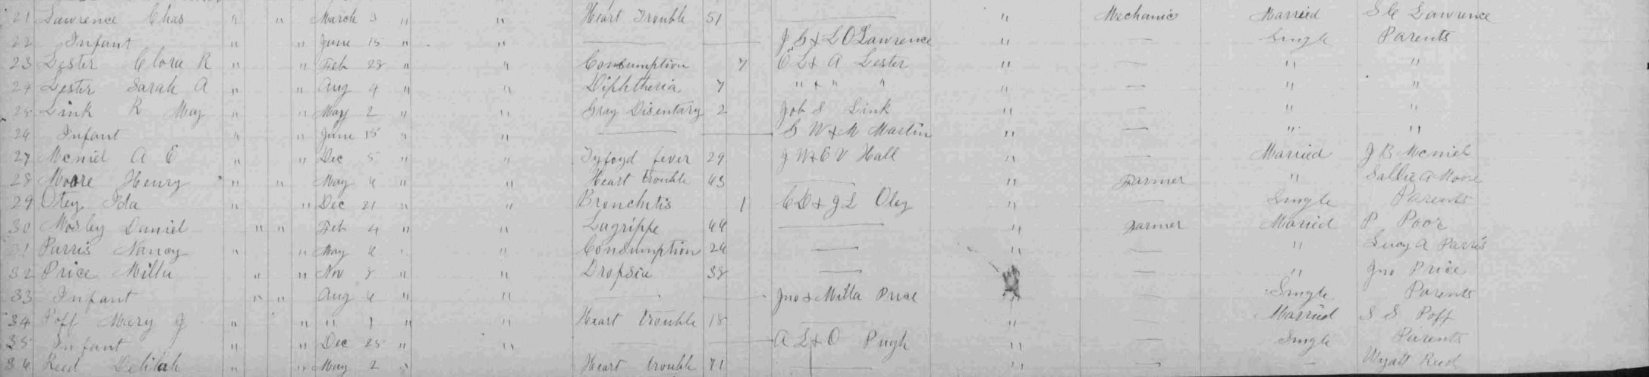 21 Lawrence Chas " " March 3 " " Heart Trouble 51 — " Mechanic Married S C Lawrence
22 Infant " " June 15 " " — J C & L O Lawrence " — Single Parents
23 Lester Clora R " " Feb 28 " " Consumption 7 C L & A Lester " — " "
24 Lester Sarah A " " Aug 9 " " Diphtheria 7 " " & " " " — " "
25 Link R May " " May 2 " " Gray Disentary 2 Job S Link " — " "
26 Infant " " June 15 " " — G W & M Martin " — " "
27 Mcniel A E " " Dec 5 " " Tyfoyd fever 29 J W & E V Hall " — Married J B Mcniel
28 Moore Henry " " May 4 " " Heart trouble 43 — " Farmer " Sallie A Moore
29 Otey Ida " " Dec 21 " " Bronchetis 1 C D & J L Otey " — Single Parents
30 Mosley Daniel " " Feb 4 " " Lagrippe 44 — " Farmer Married P Poor
31 Parris Nancy " " May 4 " " Consumption 26 — " — " Leroy A Parris
32 Price Milla " " Nov 8 " " Dropsia 38 — — " Jno Price
33 Infant " " Aug 4 " " — Jno & Milla Price — Single Parents
34 Poff Mary J " " " 1 " " Heart trouble 18 — " — Married S S Poff
35 Infant " " Dec 25 " " — A L & O Pugh " — Single Parents
36 Reed Delilah " " May 2 " " Heart trouble 71 — " — — Wyatt Reed